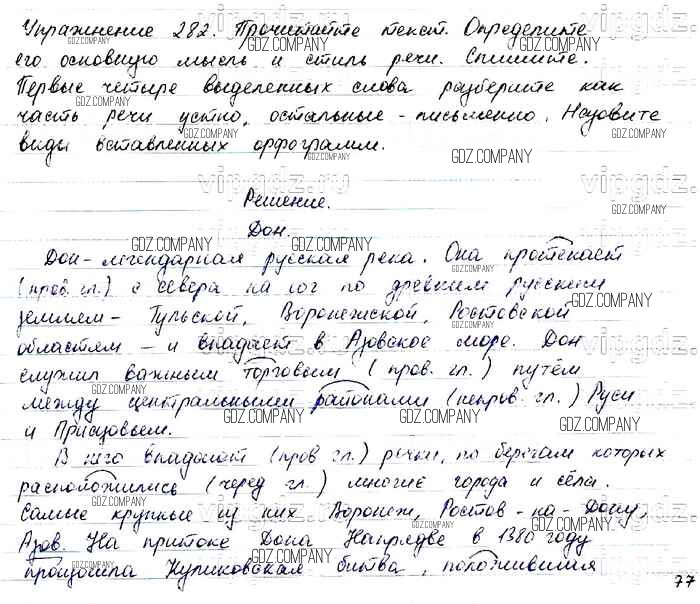 Упражнение 282. Прочитайте текст. Определите
его основную мысль и стиль речи. Спишите.
Первые четыре выделенных слова разберите как
часть речи устно, остальные - письменно. Назовите
виды вставленных орфограмм.
Решение.
Дон.
Дон - легендарная русская река. Она протекает
(пров. гл.) с севера на юг по древним русским
землям - Тульской, Воронежской, Ростовской
областям - и впадает в Азовское море. Дон
служил важным торговым (пров. гл.) путём
между центральными районами (непров. гл.) Руси
и Приазовьем.
В него впадают (пров гл.) речки, по берегам которых
расположились (черед гл.) многие города и сёла.
Самые крупные из них Воронеж, Ростов-на-Дону,
Азов. На притоке Дона Непрядве в 1380 году
произошла Куликовская битва, положившая
77